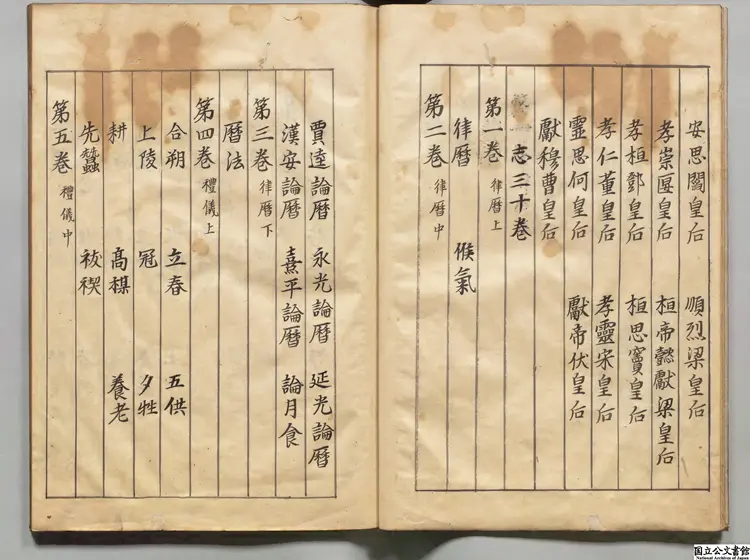 安思閻皇后 順烈梁皇后
孝崇匽皇后 桓帝懿獻梁皇后
孝桓鄧皇后 桓思竇皇后
孝仁董皇后 孝靈宋皇后
靈思何皇后 獻帝伏皇后
獻穆曹皇后
志三十卷
第一卷 律曆上
律曆 候氣
第二卷 律曆中
賈逵論曆 永光論曆 延光論曆
漢安論曆 熹平論曆 論月食
第三卷 律曆下
曆法
第四卷 禮儀上
合朔 立春 五供
上陵 冠 夕牲
耕 高禖 養老
先蠶 祓禊
第五卷 禮儀中
国立公文書館
National Archives of Japan